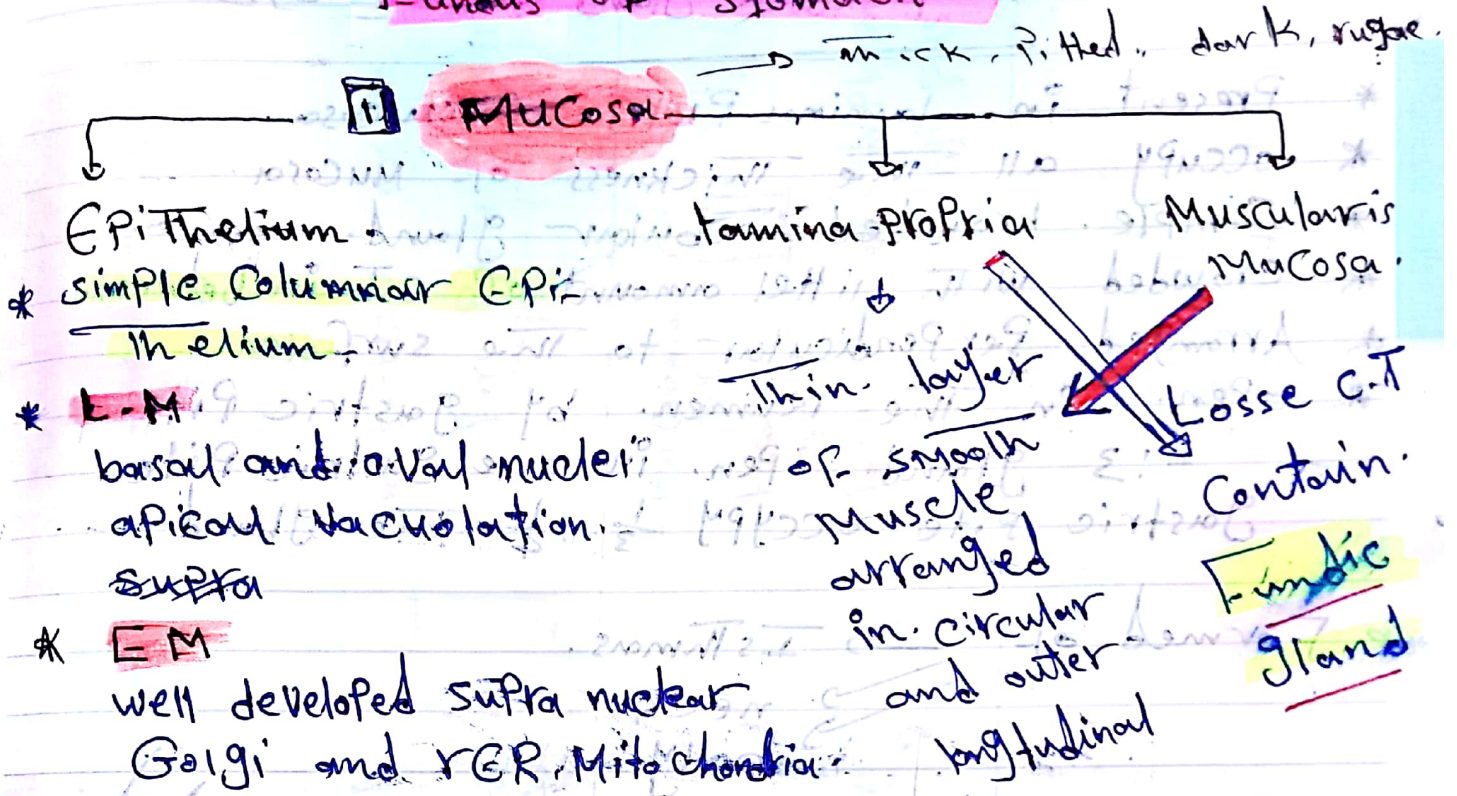 Fundus of stomach
thick, Pitted, dark, rugae.
1 Mucosa
Epithelium
* simple Columnar Epi-
thelium.
* L.M
basal and oval nuclei
apical vacuolation.
supra
* E M
well developed supra nuclear
Golgi and rER, Mitochondria.
lamina propria
Thin layer
of smooth
Muscle,
arranged
in circular
and outer
longtudinal
Muscularis
MuCosa.
Losse C.T
Contain.
Fundic
gland